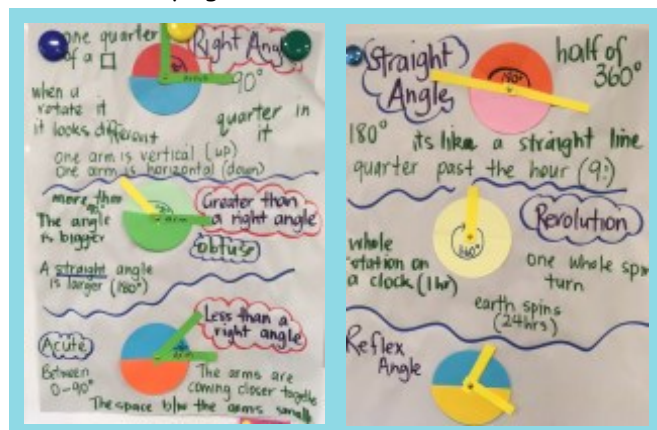 one quarter
of a
Right Ang
90°
when u
rotate it
it looks different
quarter in
it
one arm is vertical (up)
one arm is horizontal (down)
more than
90°
The angle
is bigger
Greater than
a right angle
obtuse
A straight angle
is larger (180°)
Less than a
right angle
Acute
Between
0-90°
arm
The arms are
coming closer togethe
The space b/w the arms small
Straight
Angle
180°
half of
360°
180° its like a straight line
quarter past the hour (9:)
Revolution
360°
whole
otation on
a clock (1hr)
one whole spin
turn
earth spins
(24hrs)
Reflex
Angle